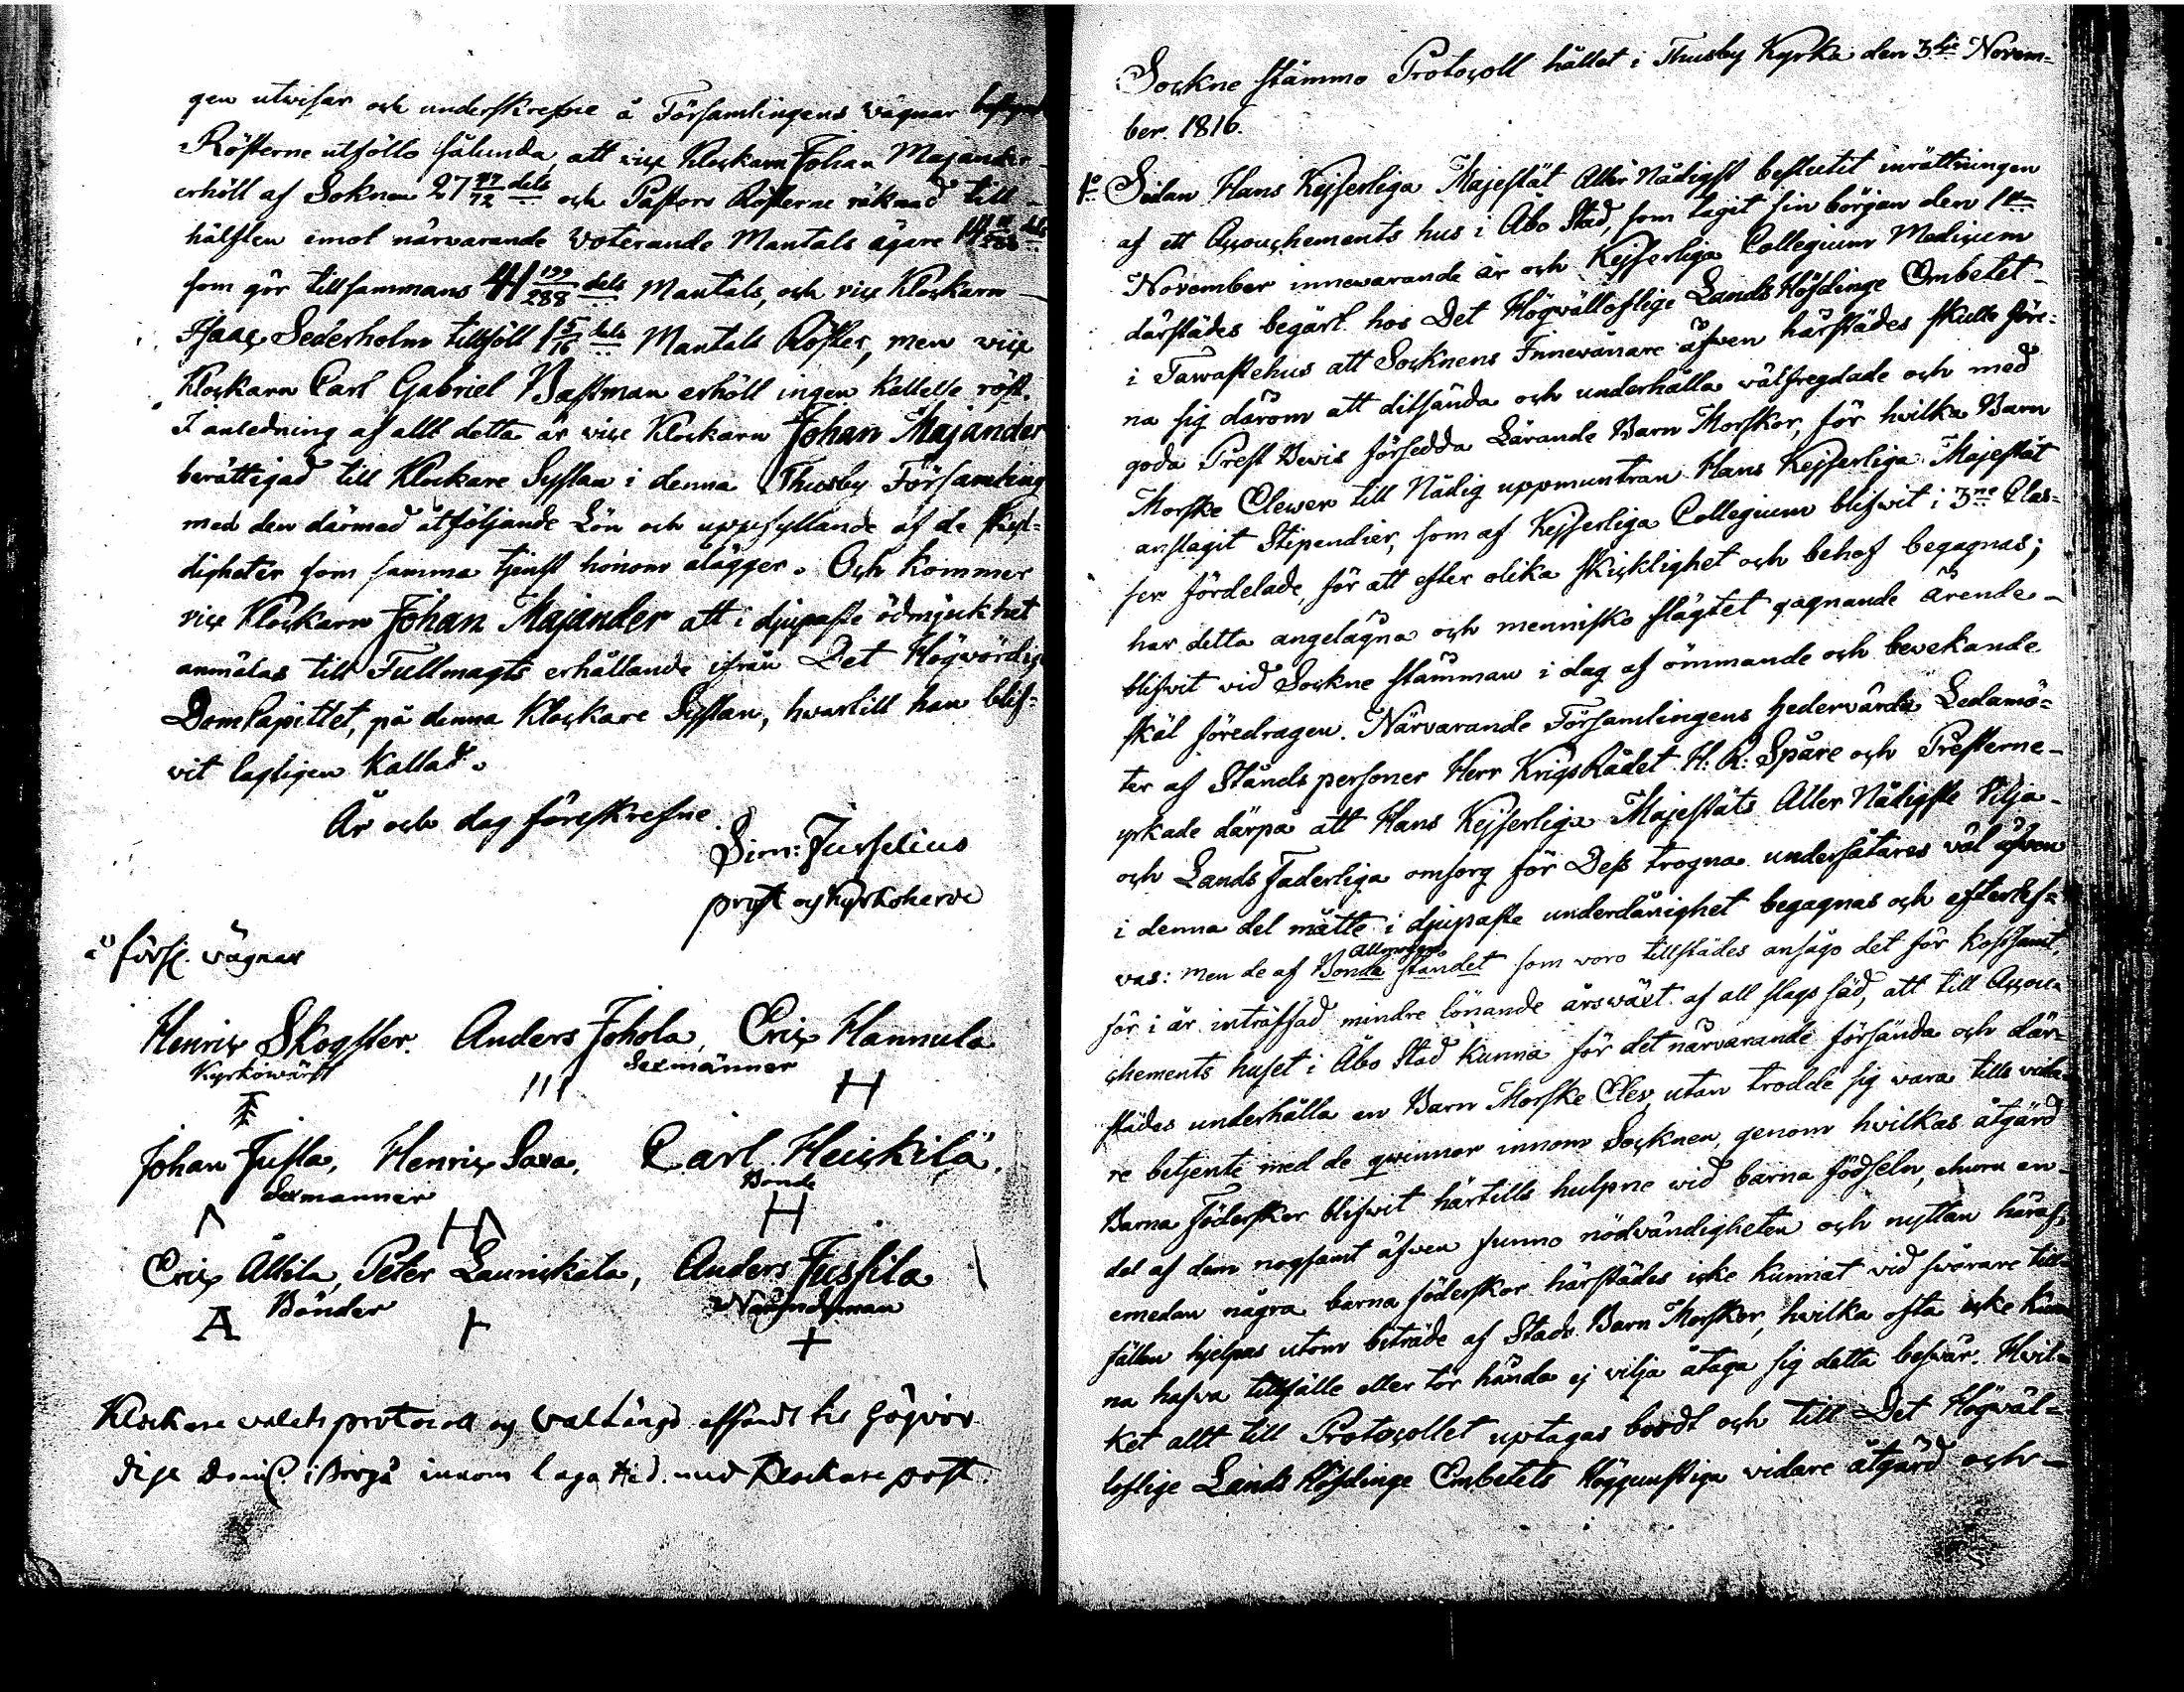 gen utvisar och underskrefne å Församlingens vägnar
Rösterne utföllo sålunda, att vice Klockarn Johan Majander
erhöll af Soknen 27 47/72 dels och Pastors Rösterne räknad till
hälften emot närvarande voterande Mantals ägare
som gör tillsammans 41 199/288 dels Mantals, och vice Klockarn
Isaac Sederholm tillföll 1 5/16 dels Mantals Röster, men vice
Klockarn Carl Gabriel Wastman erhöll ingen Kallelse röst.
I anledning af allt detta är vice Klockarn Johan Majander
berättigad till Klockare Sysslan i denna Thusby Församling
med den därmed åtföljande Lön och uppfyllande af de skyl=
digheter som samma tjenst honom ålägger. Och kommer
vice Klockarn Johan Majander att i djupaste ödmjukhet
anmälas till Fullmagts erhållande ifrån Det Högvördige
DomCapitlet, på denna Klockare Sysslan, hvartill han blif=
vit lagligen Kallad.
År och dag föreskrefne.
Sim: Jusselius
prost och Kyrkoherde
å förs. vägnar
Henric Skogster. Anders Johola, Eric Hannula
Kyrkowärd Sexmänner
Johan Jusla, Henric Saxa, Carl Heickilä.
Sexmänner Bonde
Eric Alkila, Peter Launickala, Anders Jussila
Bönder Nämndeman
Klockare valets protocoll och Vallängd afsändt till Högvör
dige Domk. i Borgå innom laga tid med Klockare post.
Sockne stämmo Protocoll hållet i Thusby Kyrka den 3die Novem=
ber. 1816.
1o Sedan Hans Kejserliga Majestät Aller Nådigst beslutit inrättningen
af ett Accouchements hus i Åbo Stad, som tagit sin början den 1ta
November innewarande år och Kejserliga Collegium Medicum
därstädes begärt hos Det Högvälloflige Lands Höfdinge Embetet
i Tawastehus att Socknens Innevånare äfven härstädes skulle före=
na sig därom att ditsända och underhålla välfregdade och med
goda Prest Bevis försedda Lärande Barn Morskor, för hvilka Barn
Morske Elever till Nådig uppmuntran Hans Kejserliga Majestät
anslagit Stipendier, som af Kejserliga Collegium blifwit i 3ne Clas=
ser fördelade, för att efter olika skicklighet och behof begagnas;
har detta angelägna och mennisko slägtet gagnande ärende
blifwit vid Sockne stämman i dag af ömmande och bevekande
skäl föredragen. Närvarande Församlingens hedervärda Ledamö=
ter af Stånds personer Herr KrigsRådet H: R: Spåre och Presterne
yrkade därpå att Hans Kejserliga Majestäts Aller Nådigste Vilja
och Lands Faderliga omsorg för Dess trogna undersåtares väl äfven
i denna del måtte i djupaste underdånighet begagnas och efterlef=
Allmoge
vas: men de af Bonde ståndet som voro tillstädes ansågo det för kostsamt,
för i år inträffad mindre lönande årswäxt af all slags säd, att till Accou=
chements huset i Åbo Stad kunna för det närvarande försända och där=
städes underhålla en Barn Morske Elev utan trodde sig vara till vida=
re betjente med de qwinnor innom Socknen, genom hvilkas åtgärd
Barna Föderskor blifwit härtills hulpne vid barna födseln, ehuru en
del af dem nogsamt äfven funno nödvändigheten och nyttan häraf,
emedan några barna föderskor härstädes icke kunnat vid svårare till=
fällen hjelpas utom biträde af Stads Barn Morskor, hvilka ofta icke kun
na hafva tillfälle eller tör hända ej vilja åtaga sig detta besvär. Hvil=
ket allt till Protocollet uptagas bordt och till Det Högväl=
loflige Lands Höfdinge Embetets Höggunstiga vidare åtgärd och